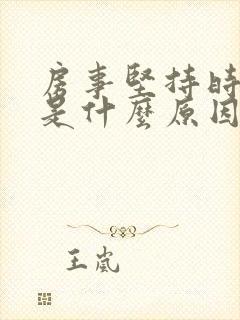 房事堅持時
是什麼原因
王嵐